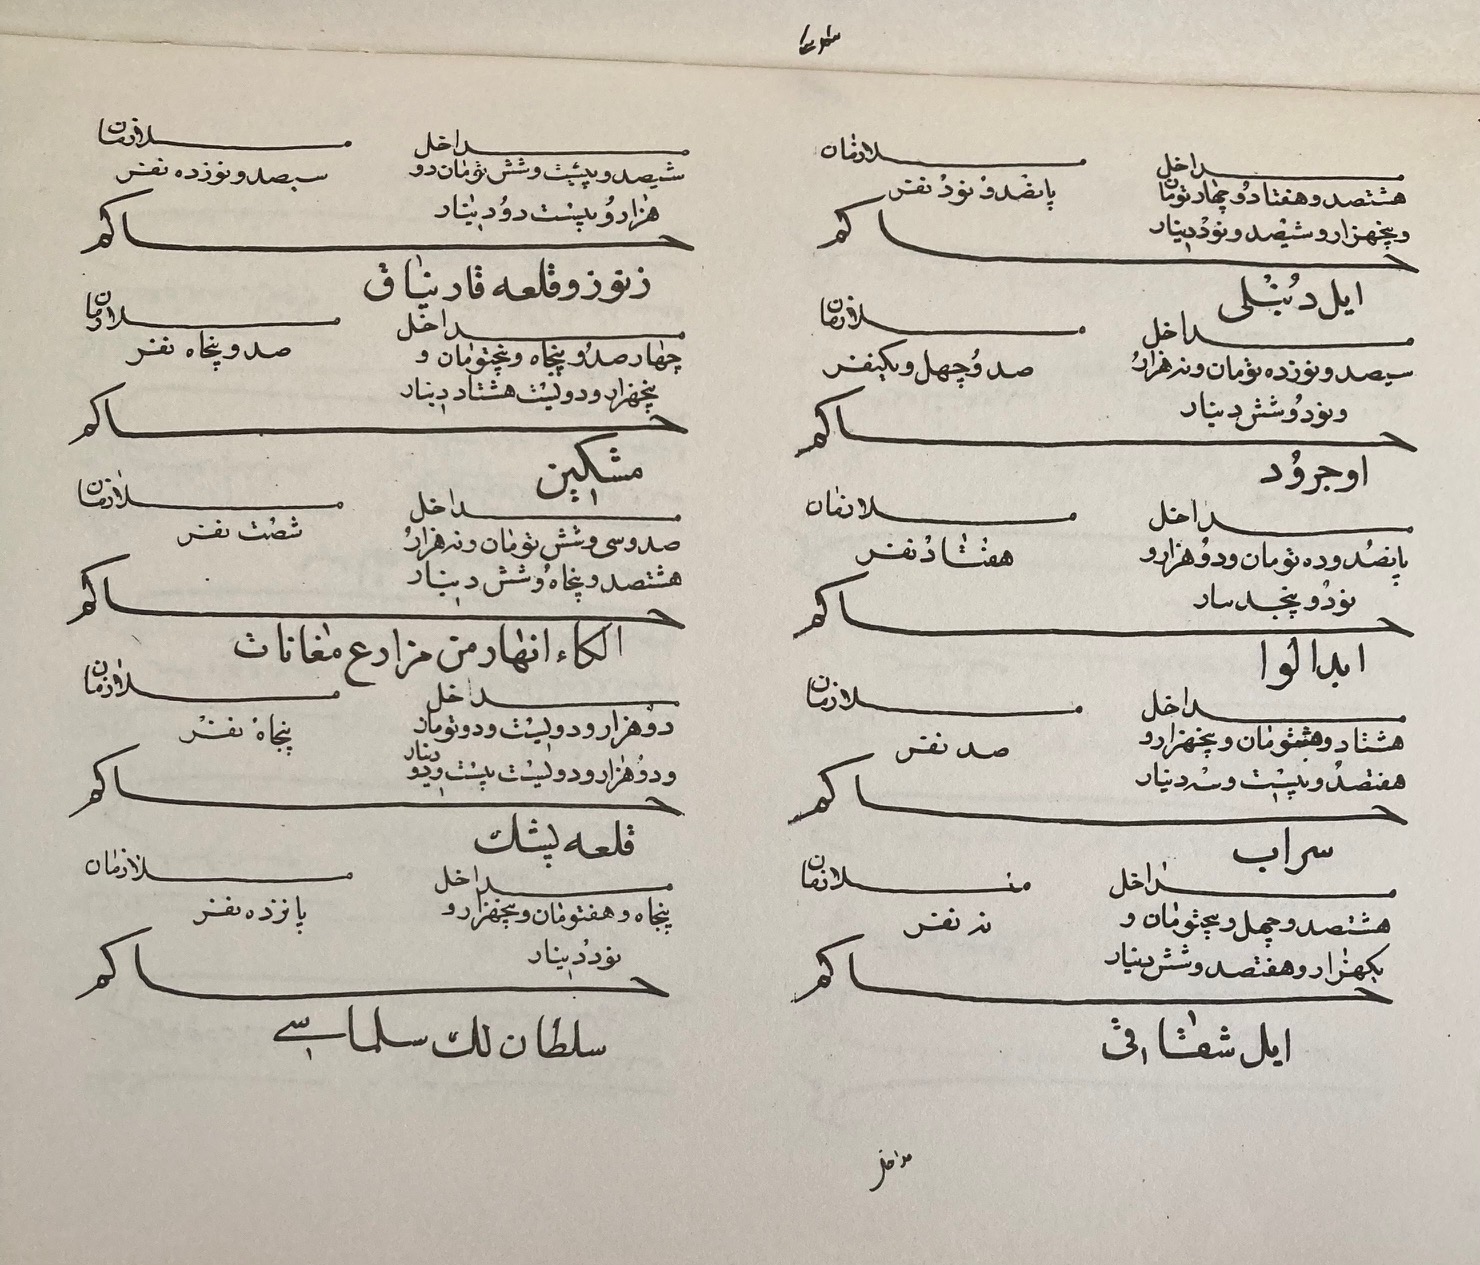 مداخل ملازمان
هشتصد و هفتاد و چهار تومان پانصد و نود نفر
و پنجهزار و شیصد و نود دینار
حاکم
ایل دنبلی
مداخل ملازمان
سیصد و نوزده تومان و نه هزار صد و چهل و یکنفر
و نود و شش دینار
حاکم
اوجرود
مداخل ملازمان
پانصد و ده تومان و دو هزار و هفتاد نفر
نود و پنجدینار
حاکم
ابدالوا
مداخل ملازمان
هشتاد و هفتومان و پنجهزار و صد نفر
هفتصد و بیست و سه دینار
حاکم
سراب
مداخل ملازمان
هشتصد و چهل و پنجتومان و نه نفر
یکهزار و هفتصد و شش دینار
حاکم
ایل شقاقی
مداخل ملازمان
شیصد و بیست و شش تومان دو سیصد و نوزده نفر
هزار و بیست دو دینار
حاکم
زنوز و قلعه قارنیاق
مداخل ملازمان
چهار صد و پنجاه و پنجتومان و صد و پنجاه نفر
پنجهزار و دویست هشتاد دینار
حاکم
مشکین
مداخل ملازمان
صد و سی و شش تومان و نه هزار شصت نفر
هشتصد و پنجاه و شش دینار
حاکم
الکاء انهار من مزارع مغانات
مداخل ملازمان
دو هزار و دویست و دو تومان پنجاه نفر
و دو هزار و دویست بیست و دو دینار
حاکم
قلعه پشک
مداخل ملازمان
پنجاه و هفتومان و پنجهزار و پانزده نفر
نود دینار
حاکم
سلطان لک سلماسی
مداخل